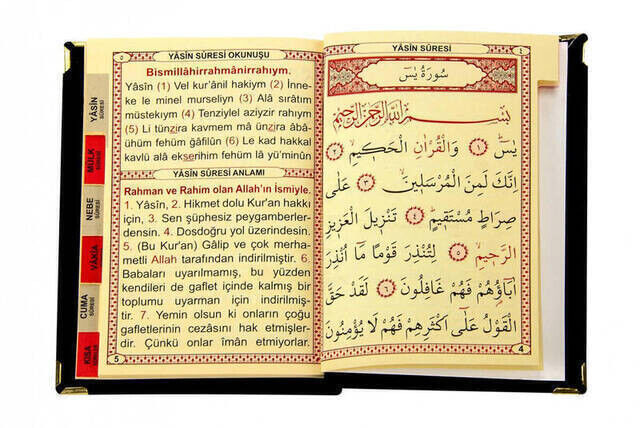 YÂSİN SÛRESİ
٤
سُورَةُ يٰسٓ
بِسْمِ اللّٰهِ الرَّحْمٰنِ الرَّحِيمِ
يٰسٓ ﴿١﴾ وَالْقُرْاٰنِ الْحَكِيمِ ﴿٢﴾
اِنَّكَ لَمِنَ الْمُرْسَلِينَ ﴿٣﴾ عَلٰى
صِرَاطٍ مُسْتَقِيمٍ ﴿٤﴾ تَنْزِيلَ الْعَزِيزِ
الرَّحِيمِ ﴿٥﴾ لِتُنْذِرَ قَوْمًا مَٓا اُنْذِرَ
اٰبَٓاؤُهُمْ فَهُمْ غَافِلُونَ ﴿٦﴾ لَقَدْ حَقَّ
الْقَوْلُ عَلٰٓى اَكْثَرِهِمْ فَهُمْ لَا يُؤْمِنُونَ
4
٥
YÂSİN SÛRESİ OKUNUŞU
Bismillâhirrahmânirrahıym.
Yâsîn (1) Vel kur'ânil hakiym (2) İnne-
ke le minel murseliyn (3) Alâ sırâtım
müstekıym (4) Tenziylel aziyzir rahıym
(5) Li tünzira kavmem mâ ünzira âbâ-
ühüm fehüm ğâfilûn (6) Le kad hakkal
kavlü alâ ekserihim fehüm lâ yü'minûn
YÂSİN SÛRESİ ANLAMI
Rahman ve Rahim olan Allah'ın İsmiyle.
1. Yâsîn, 2. Hikmet dolu Kur'an hakkı
için, 3. Sen şüphesiz peygamberler-
densin. 4. Dosdoğru yol üzerindesin.
5. (Bu Kur'an) Gâlip ve çok merha-
metli Allah tarafından indirilmiştir. 6.
Babaları uyarılmamış, bu yüzden
kendileri de gaflet içinde kalmış bir
toplumu uyarman için indirilmiş-
tir. 7. Yemin olsun ki onların çoğu
gafletlerinin cezasını hak etmişler-
dir. Çünkü onlar îmân etmiyorlar.
5
YÂSİN
SÛRESİ
MÜLK
SÛRESİ
NEBE
SÛRESİ
VÂKIA
CUMA
SÛRESİ
KISA
SÛRELER